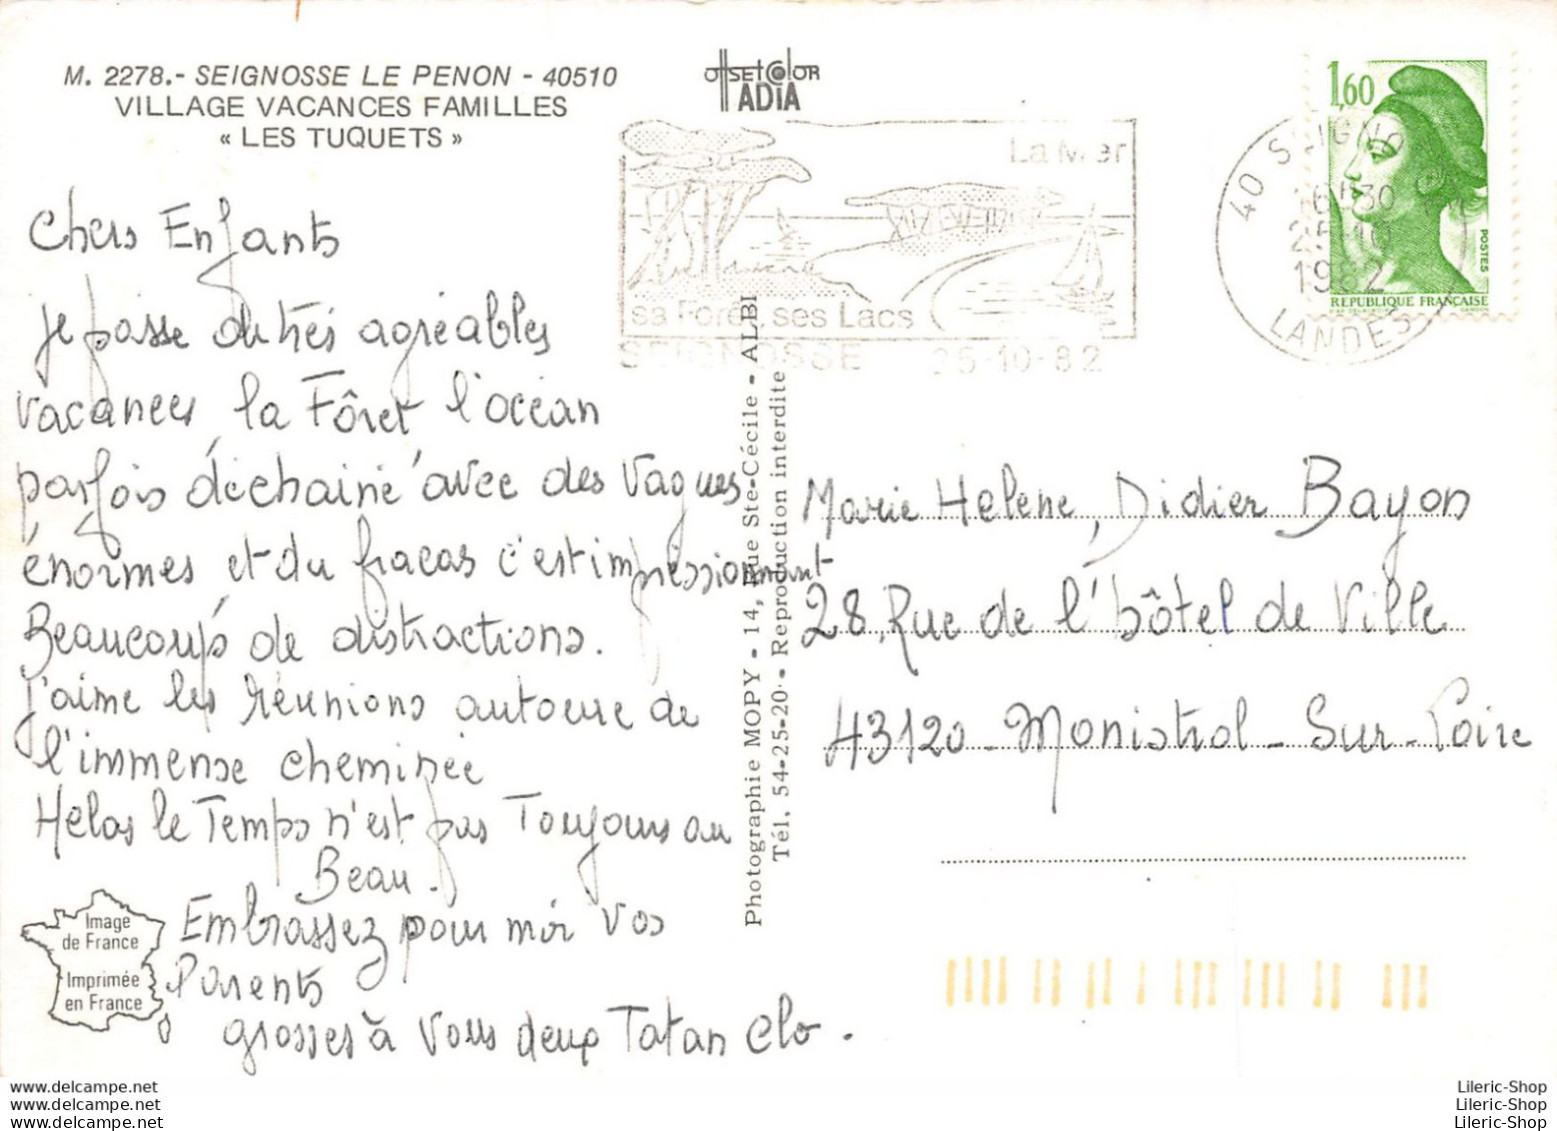 M. 2278.- SEIGNOSSE LE PENON - 40510
VILLAGE VACANCES FAMILLES
« LES TUQUETS »
OffSEt COlOR
TADIA
La Mer
sa Forêt ses Lacs
SEIGNOSSE 25-10-82
40 SEIGNOSSE
16H30
25-10
1982
LANDES
1,60
POSTES
REPUBLIQUE FRANÇAISE
Chers Enfants
Je passe de très agréables
vacances, la Fôret l'océan
parfois déchainé avec des vagues
énormes et du fracas c'est impressionnant
Beaucoup de distractions.
J'aime les réunions autour de
l'immense cheminée
Hélas le Temps n'est pas Toujours au
Beau.
Embrassez pour moi vos
Parents
grosses à vous deux Tatan Clo.
Image
de France
Imprimée
en France
Photographie MOPY - 14, Rue Ste-Cécile - ALBI
Tél. 54-25-20 - Reproduction interdite
Marie Helene, Didier Bayon
28, Rue de l'hôtel de Ville
43120 - Monistrol - Sur - Loire
www.delcampe.net
www.delcampe.net
www.delcampe.net
Lileric-Shop
Lileric-Shop
Lileric-Shop